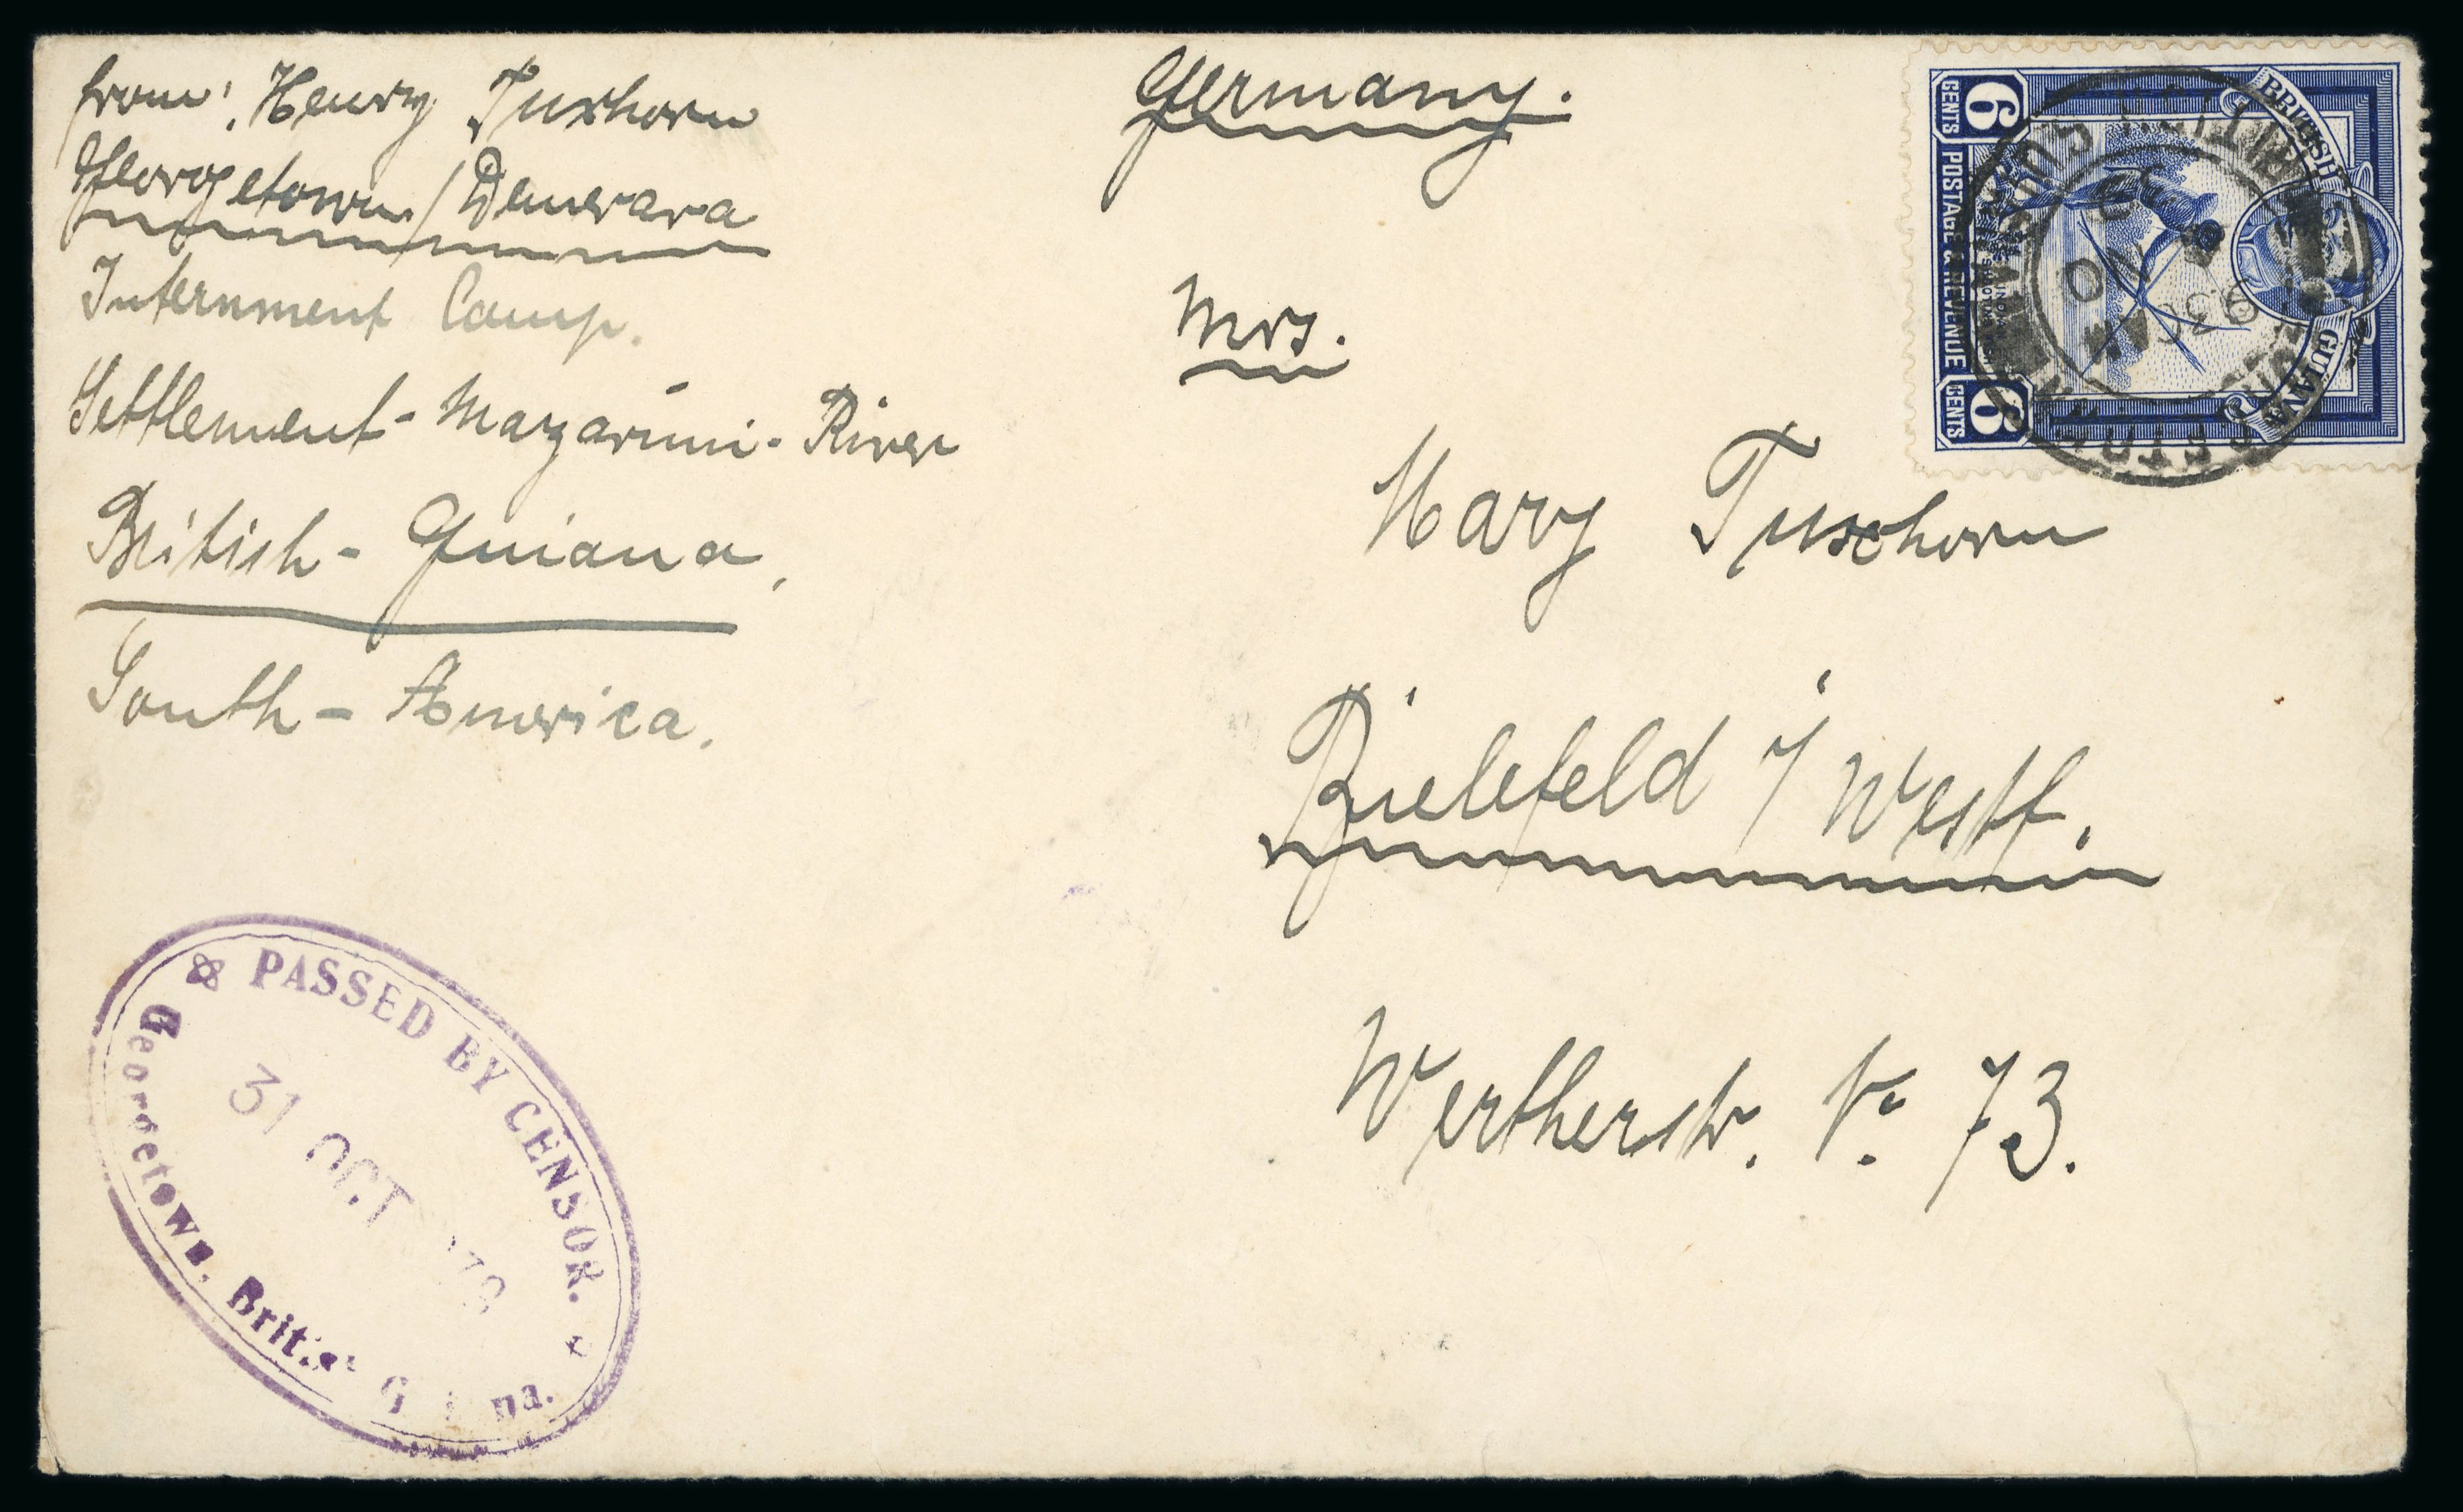 from: Henry Tuxhorn
Georgetown/Demerara
Internment Camp.
Settlement - Mazaruni - River
British - Guiana,
South - America.
Germany.
Mrs.
Mary Tuxhorn
Bielefeld i/Westf.
Wertherstr. No. 73.
BRITISH GUIANA
6 CENTS POSTAGE & REVENUE 6 CENTS
PASSED BY CENSOR.
31 OCT
Georgetown,